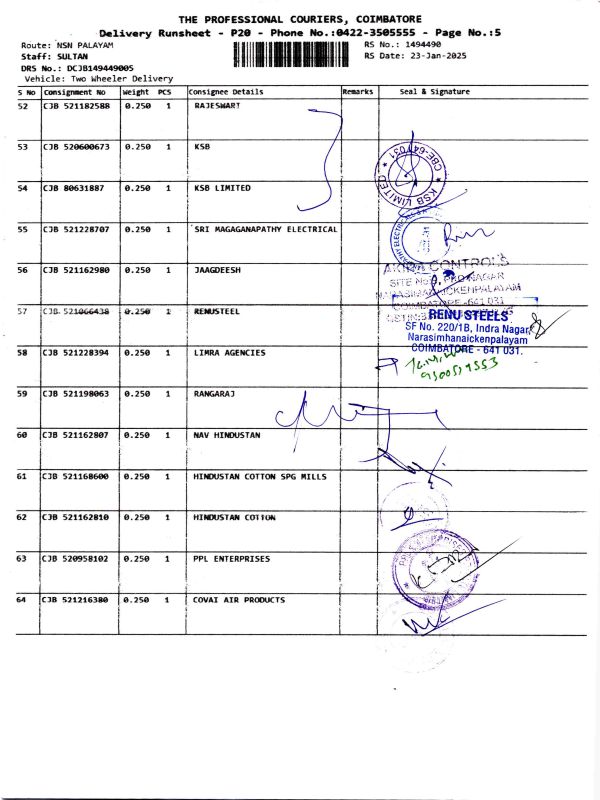 THE PROFESSIONAL COURIERS, COIMBATORE
Delivery Runsheet - P20 - Phone No.:0422-3505555 - Page No.:5
Route: NSN PALAYAM RS No.: 1494490
Staff: SULTAN RS Date: 23-Jan-2025
DRS No.: DCJB149449005
Vehicle: Two Wheeler Delivery
S No Consignment No Weight PCS Consignee Details Remarks Seal & Signature
52 CJB 521182588 0.250 1 RAJESWART
53 CJB 520600673 0.250 1 KSB
54 CJB 80631887 0.250 1 KSB LIMITED
KSB LIMITED CBE-641 031
55 CJB 521228707 0.250 1 SRI MAGAGANAPATHY ELECTRICAL
56 CJB 521162980 0.250 1 JAAGDEESH
CONTROLS
COIMBATORE -641 031
57 CJB 521066438 0.250 1 RENUSTEEL
RENU STEELS
SF No. 220/1B, Indra Nagar,
Narasimhanaickenpalayam
COIMBATORE - 641 031.
58 CJB 521228394 0.250 1 LIMRA AGENCIES
59 CJB 521198063 0.250 1 RANGARAJ
60 CJB 521162807 0.250 1 NAV HINDUSTAN
61 CJB 521168600 0.250 1 HINDUSTAN COTTON SPG MILLS
62 CJB 521162810 0.250 1 HINDUSTAN COTTON
63 CJB 520958102 0.250 1 PPL ENTERPRISES
64 CJB 521216380 0.250 1 COVAI AIR PRODUCTS